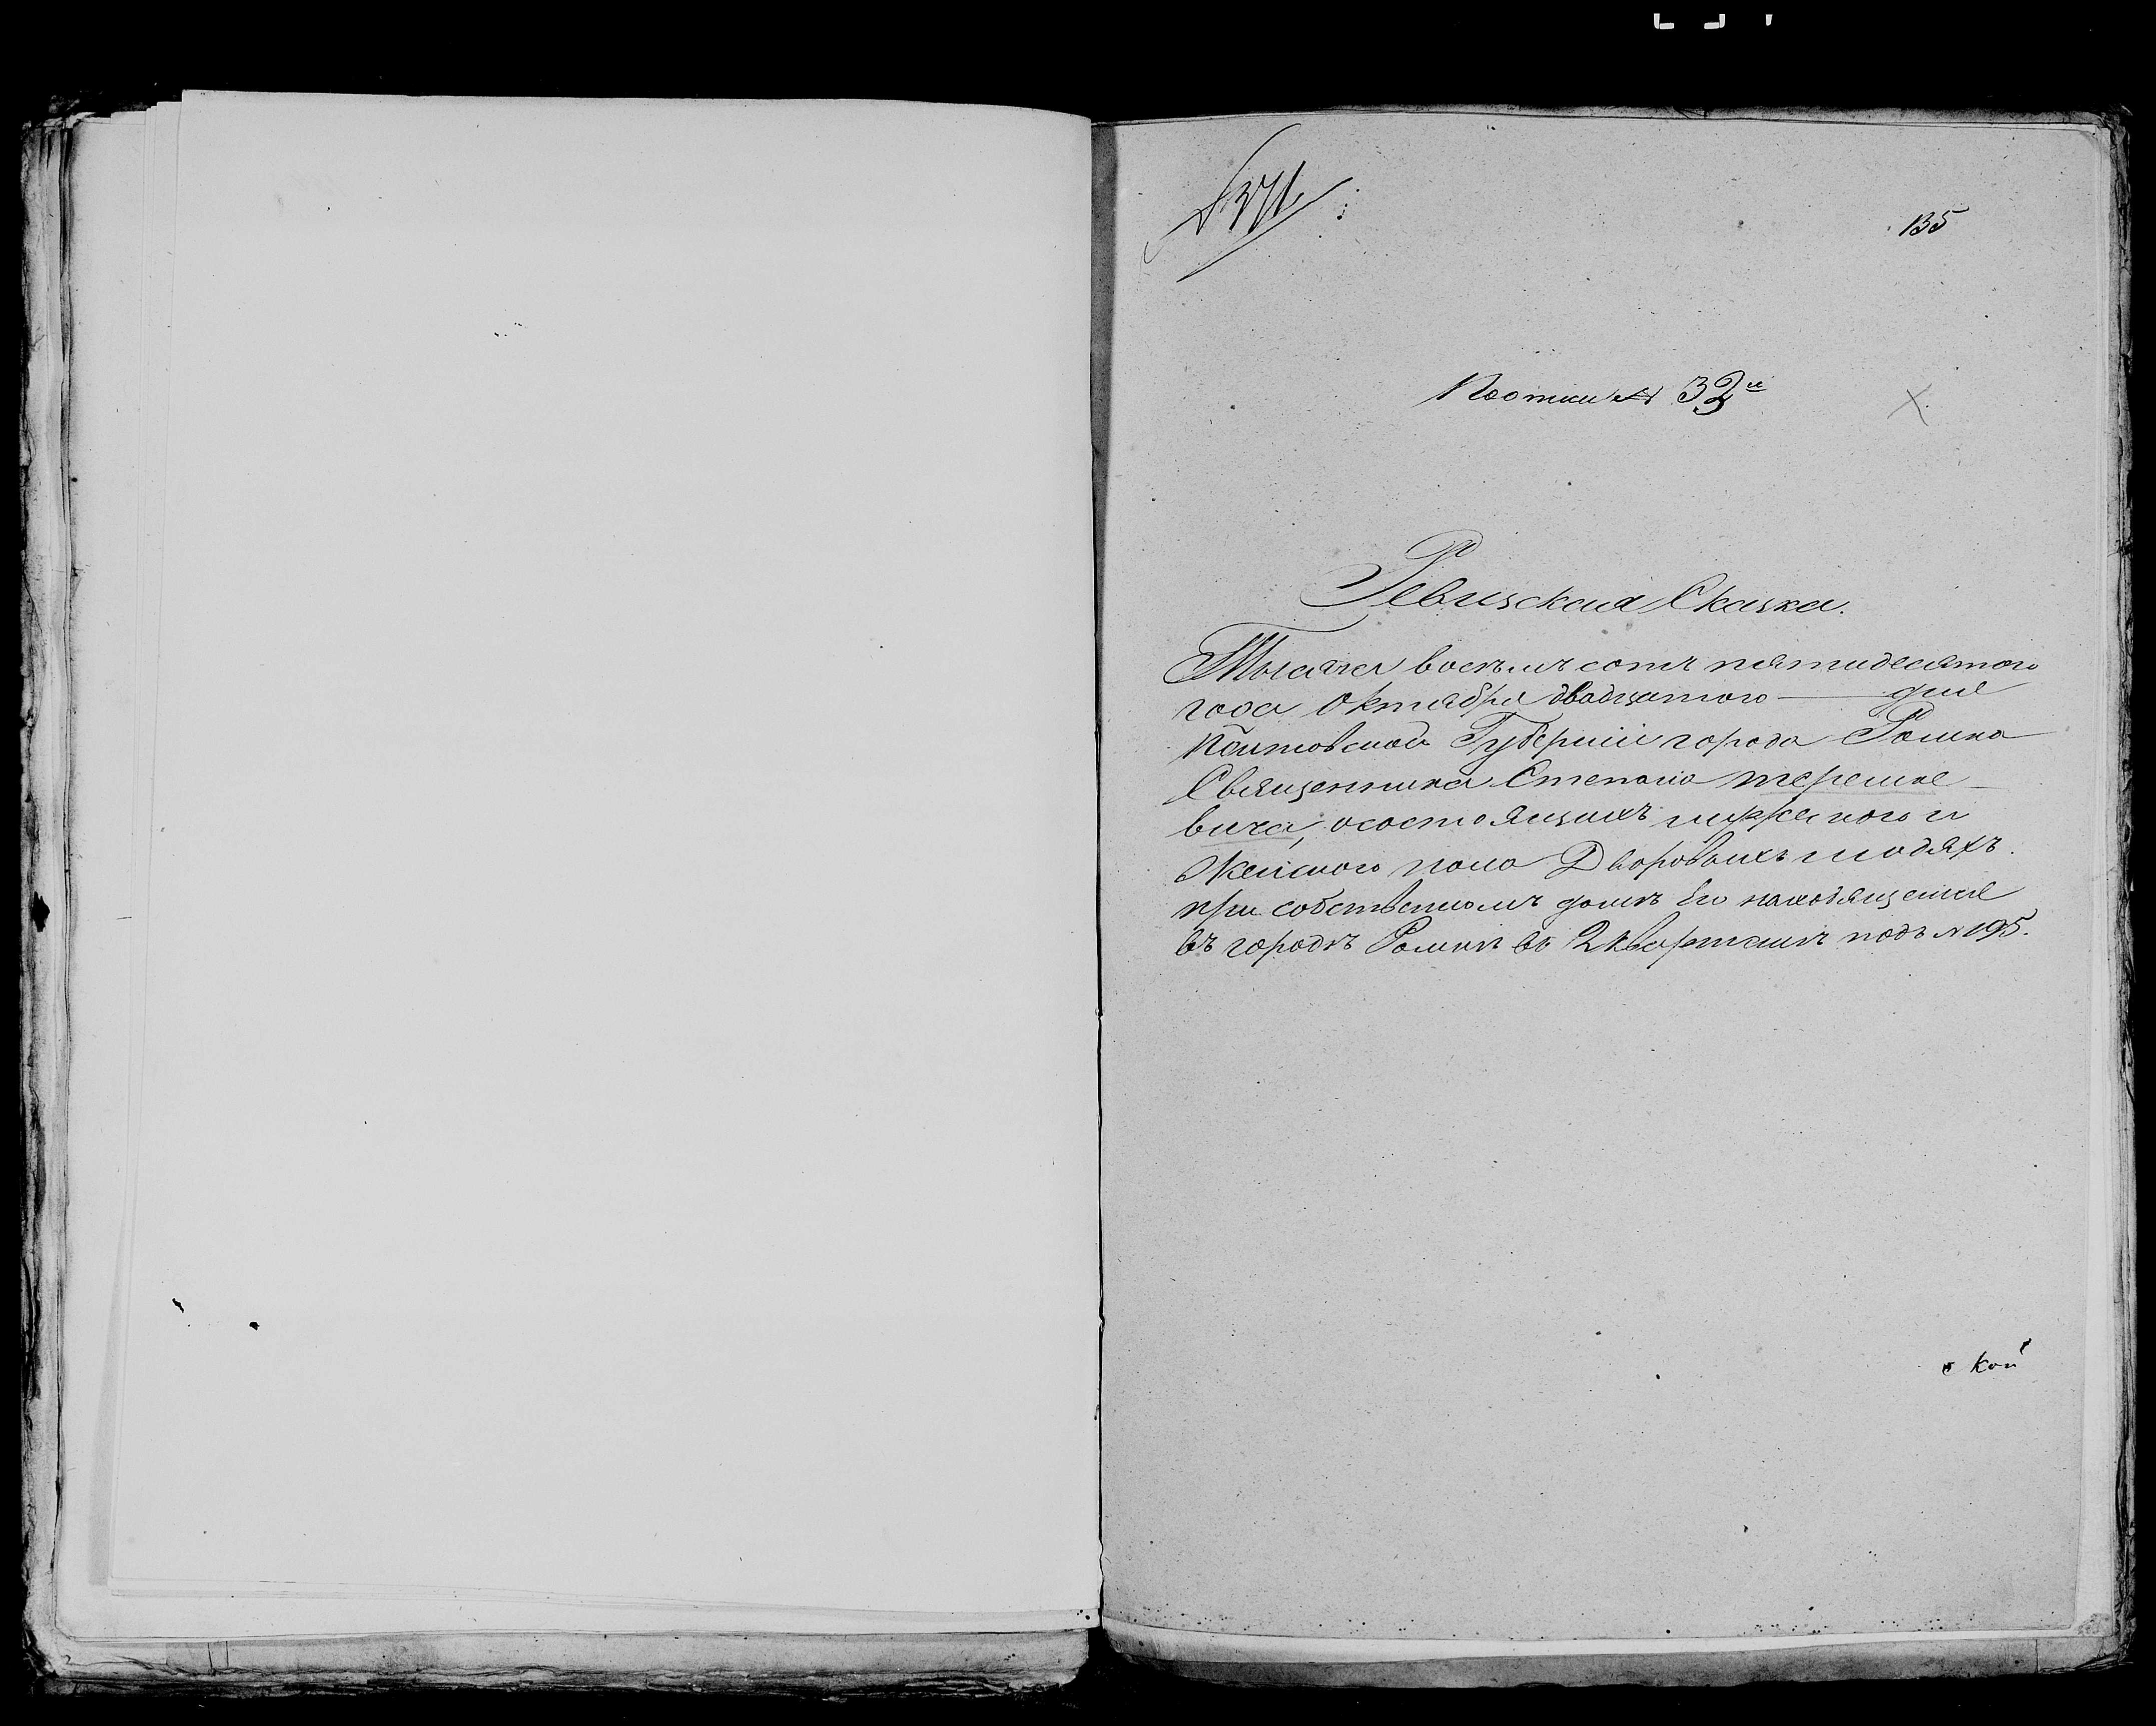 135
По описи № 32й
Ревизская Сказка.
Тысяча восемь сотъ пятидесятого
года Октября двадцатого дня
Полтавской Губерніи города Ромна
Священника Стефана Терешке
вича, осостоящихъ мужескаго и
Женского пола Дворовыхъ людяхъ.
при собственномъ домѣ Его находящемся
въ городѣ Ромнѣ во 2 кварталѣ подъ № 195.